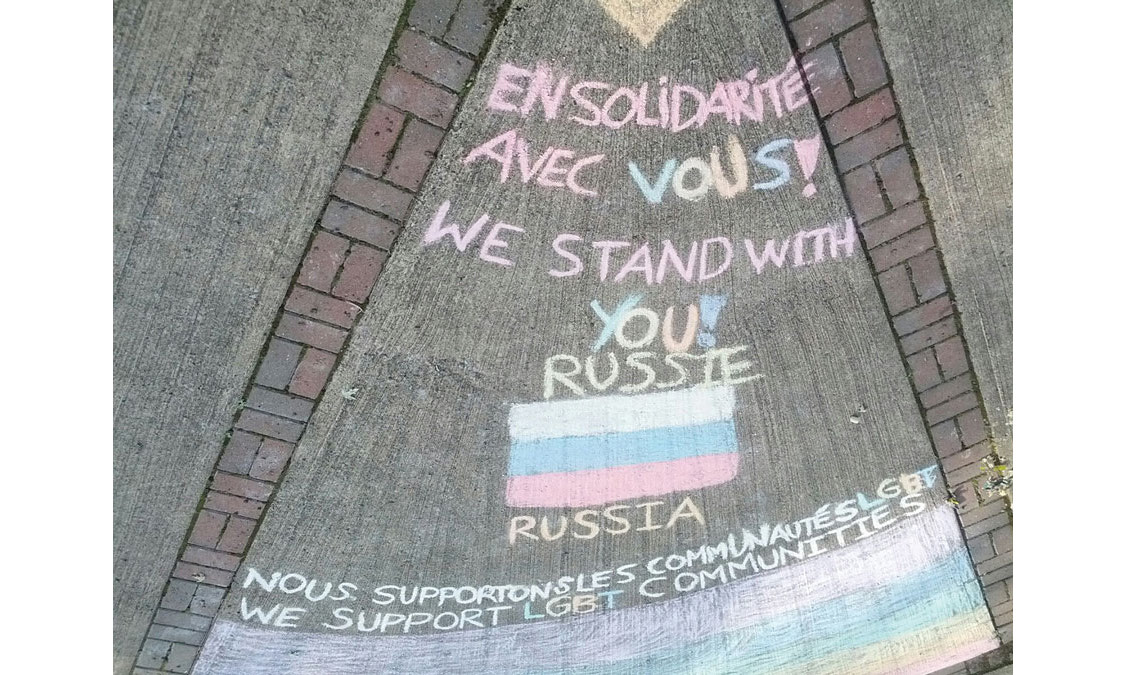 EN SOLIDARITÉ
AVEC VOUS!
WE STAND WITH
YOU!
RUSSIE
RUSSIA
NOUS SUPPORTONS LES COMMUNAUTÉS LGBT
WE SUPPORT LGBT COMMUNITIES